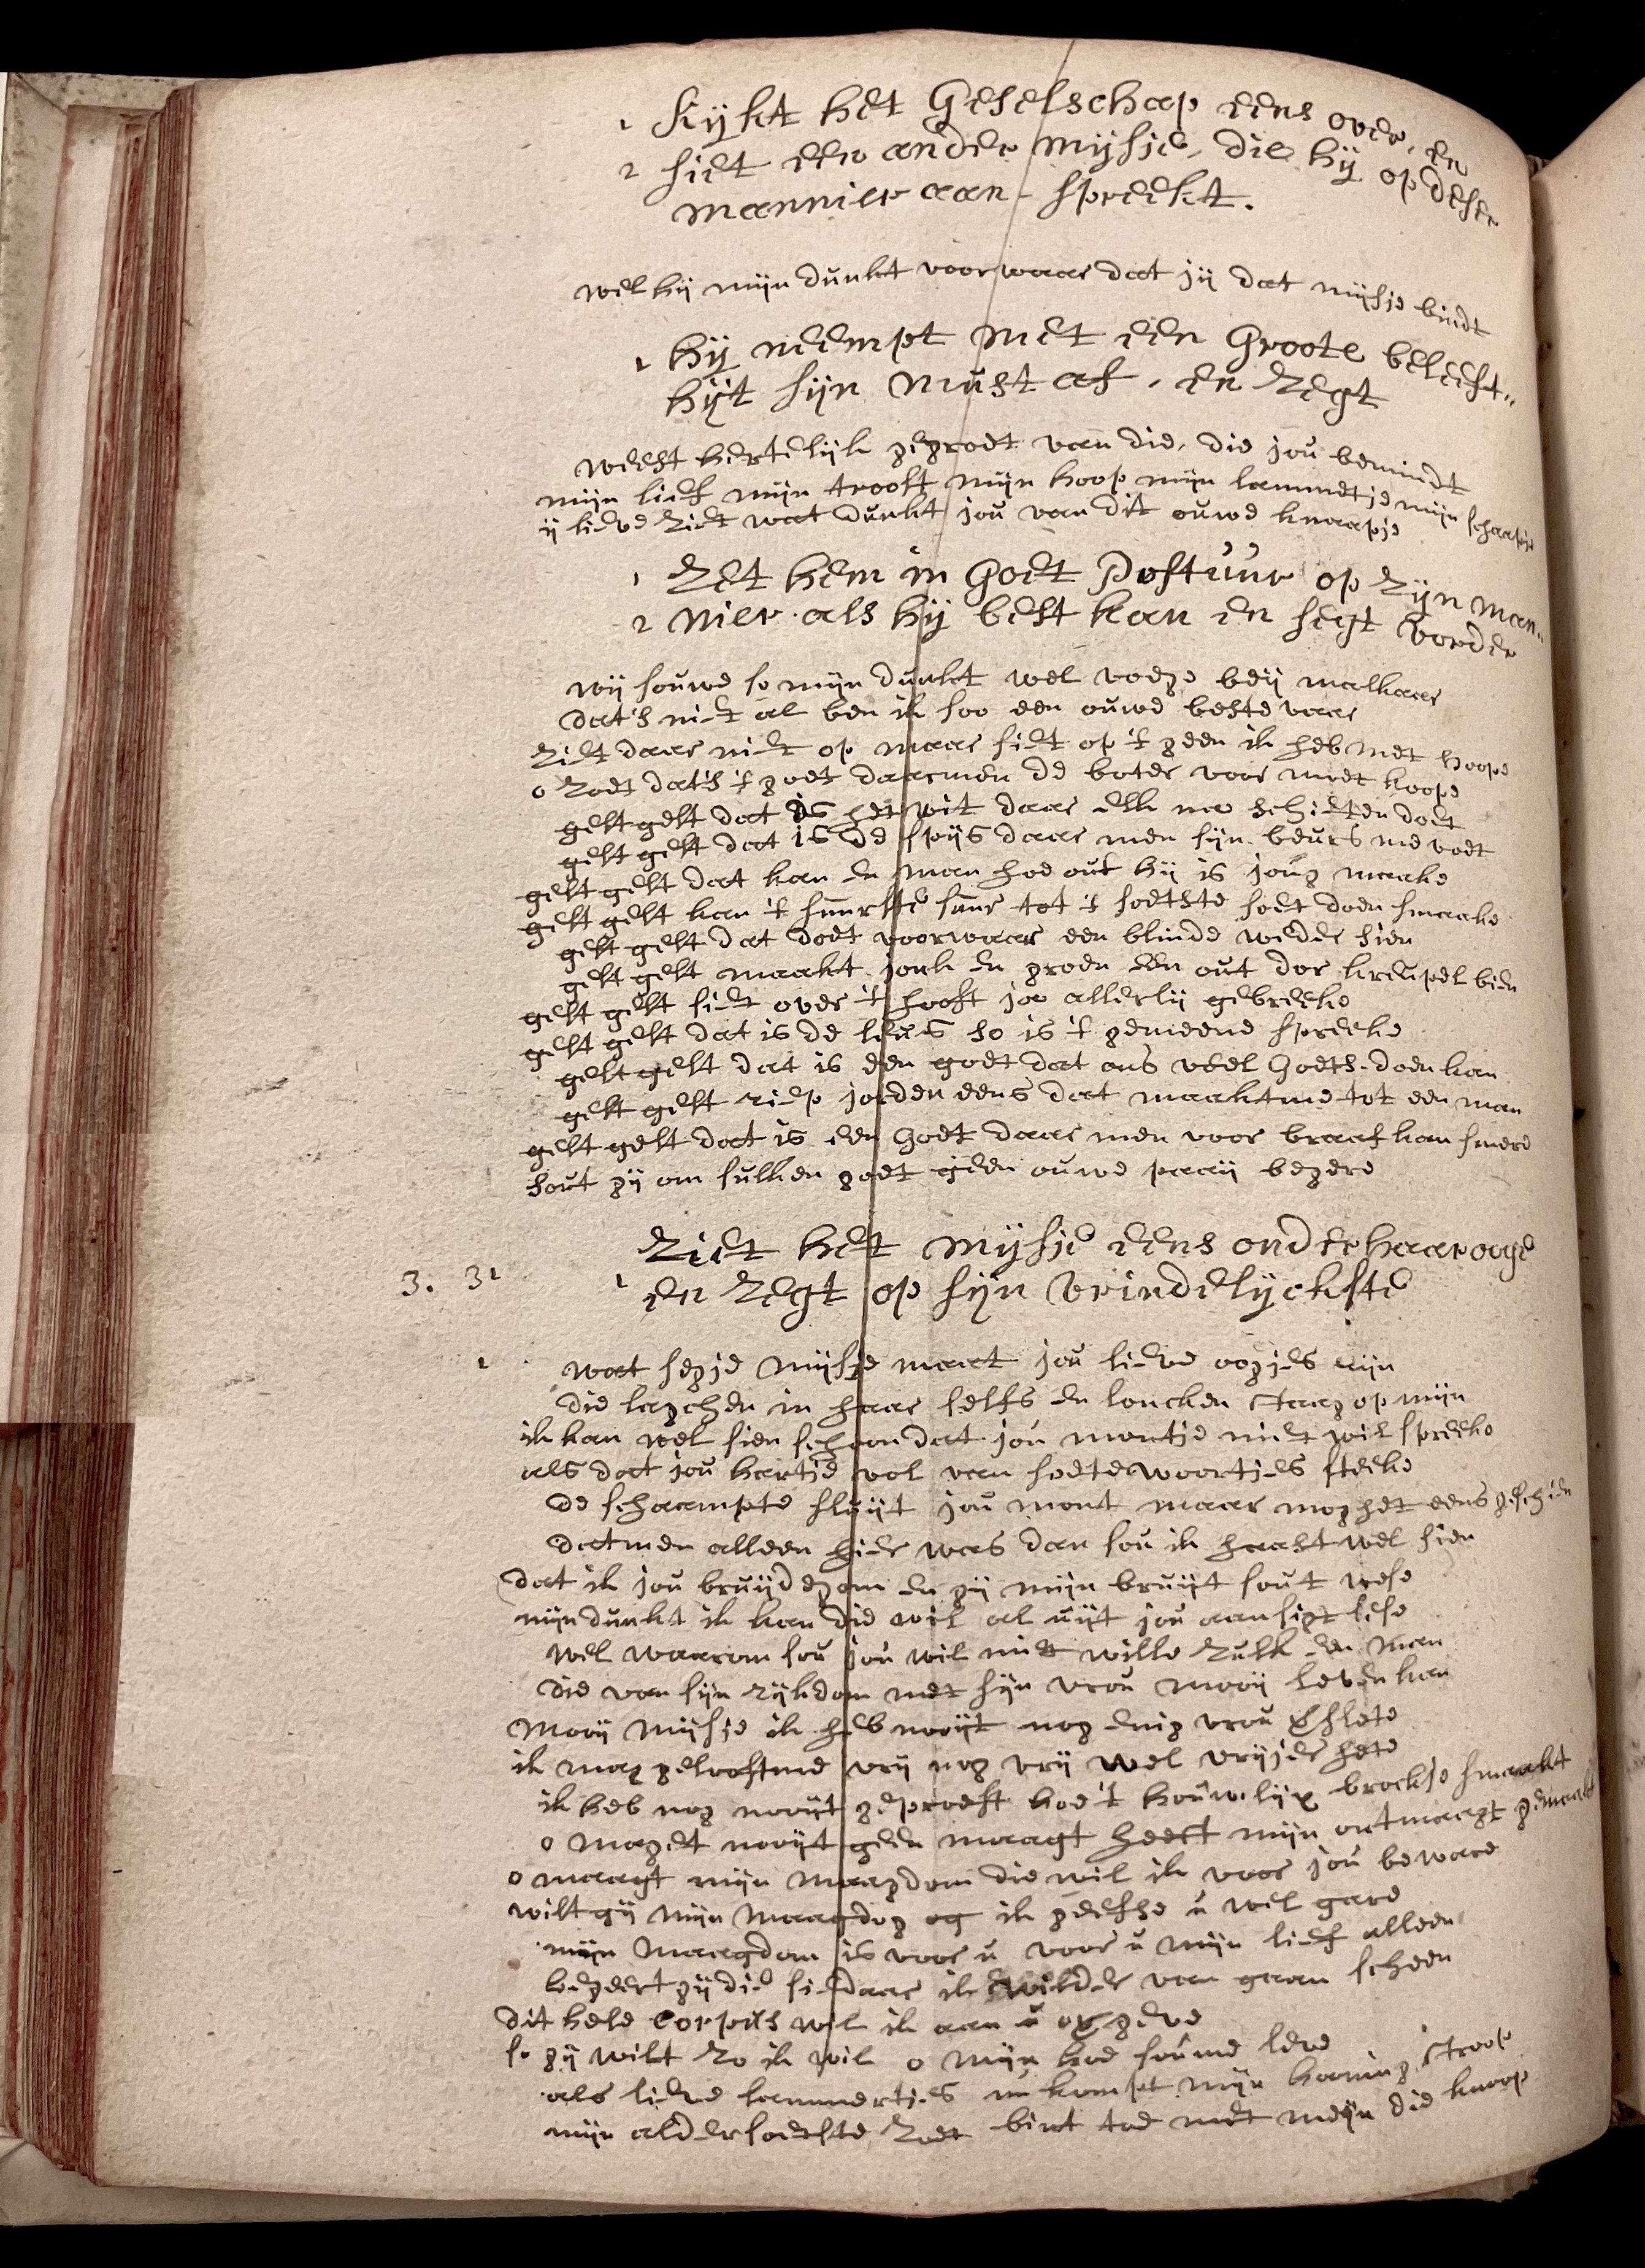 1 kijkt het Geselschap eens over, en
2 siet een ander mijsje, die hij op dese
mannier aan-spreekt.
wel hij mijn dunkt voorwaar dat jij dat mijsje bindt
1 hij neempt met een Groote beleeft„
hijt sijn must af, en zegt
weest hertelijk gegroet van die, die jou bemindt
mijn lief mijn troost mijn hoop mijn lammetje mijn schaapje
ij lieve ziet wat dunkt jou van dit ouwe knaapje
1 zet hem in Goet Postuur op zijn man„
2 nier als hij best kan en segt vorder
wij souwe so mijn dunkt wel voege beij malkaar
dat's niet al ben ik soo een ouwe beste vaar
ziet daar niet op maar siet op 't geen ik heb met hoope
o zoet dat's 't goet daarmen de boter voor moet koope
gelt gelt dat is het wit daar elk na schieten doet
gelt gelt dat is de spijs daar men sijn beurs me voet
gelt gelt dat kan en man hoe out hij is jong maake
gelt gelt kan 't suurste suur tot 't soetste soet doen smaake
gelt gelt dat doet voorwaar een blinde weder sien
gelt gelt maakt jonk en groen een out dor kreupel bien
gelt gelt siet over 't hooft ja allerlij gebreeke
gelt gelt dat is de leus so is 't gemeene spreeke
gelt gelt dat is een goet dat ons veel Goets doen kan
gelt gelt riep joeden eens dat maakt me tot een man
gelt gelt dat is een Godt daar men voor braaf kan smere
sout gij om sulken goet geen ouwe paaij begere
ziet het mijsje eens onder haar ooge
3. 31 1 en zegt op sijn vrindelijckste
1 wat segje mijsje maat jou lieve oogjes mijn
die lagchen in haar selfs en loncken staag op mijn
ik kan wel sien schoon dat jou montje niet wil spreeke
als dat jou hartje vol van soete woortjes steeke
de schaampte sluijt jou mont maar mog het eens geschien
datmen alleen hier was dan sou ik haast wel sien
dat ik jou bruijdegom en gij mijn bruijt sout wese
mijn dunkt ik kan die wil al uijt jou aansigt lese
wel waarom sou jou wil niet wille zulk en man
die van sijn rijkdom met sijn vrou mooij leven kan
Mooij mijsje ik heb nooijt nog enig vrou
ik mag gelooftme vrij nog vrij wel vrijer hete
ik heb nog nooijt geproeft hoe 't houwlijx brockje smaakt
o maget nooijt geen maagt heeft mijn ontmaagt gemaakt
o maagt mijn maagdom die wil ik voor jou beware
wilt gij mijn maagdog og ik geefse u wel gare
mijn maagdom is voor u voor u mijn lief alleen
begeert gij die siedaar ik van gaan scheen
dit hele Corpus wil ik aan u op geve
so gij wilt zo ik wil o mijn hoe sou me leve
als lieve lammertjes nu kompt mijn honing stroop
mijn aldersoetste zoet bint toe met mijn die knoop